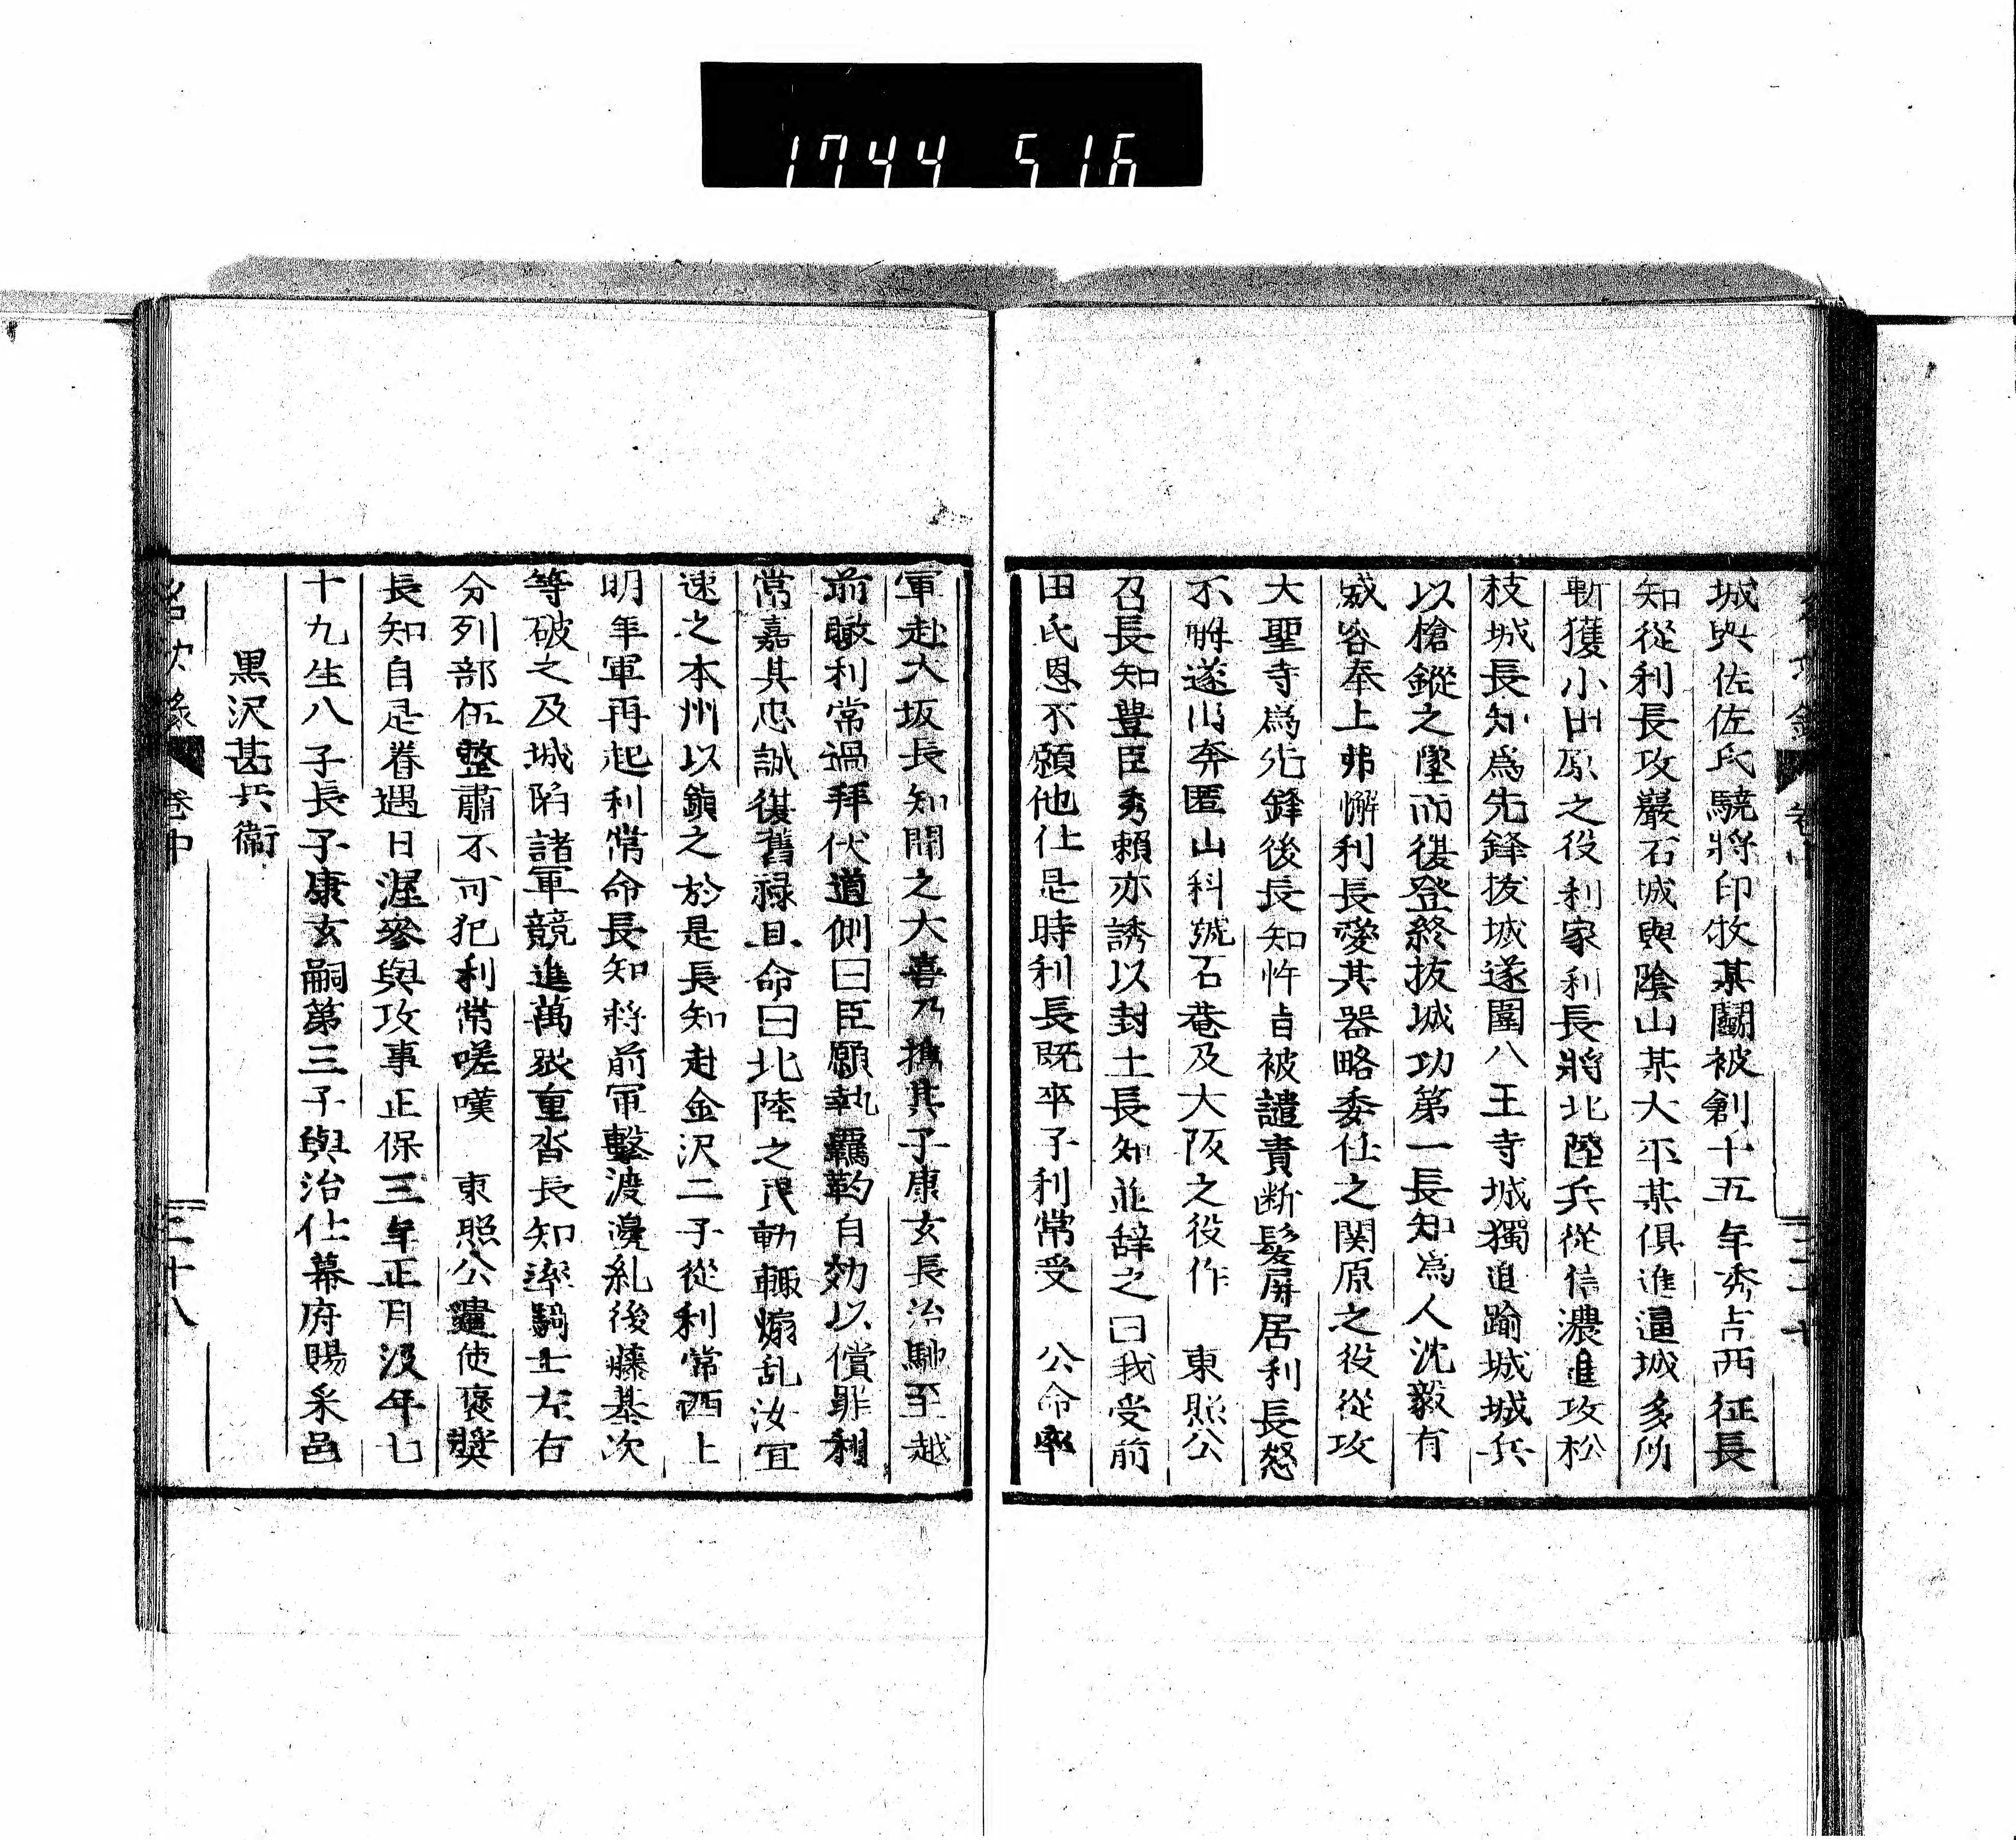 1744 516
城與佐佐氏驍將印牧某鬭被創十五年秀吉西征長
知從利長攻巖石城與陰山某大平某俱進逼城多所
斬獲小田原之役利家利長將北陸兵從信濃進攻松
枝城長知爲先鋒拔城遂圍八王寺城獨進踰城城兵
以槍鏦之墜而復登終拔城功第一長知爲人沈毅有
威容奉上弗懈利長愛其器略委任之関原之役從攻
大聖寺爲先鋒後長知忤旨被譴責断髮屏居利長怒
不解遂出奔匿山科號石菴及大阪之役作　東照公
召長知豊臣秀賴亦誘以封土長知並辞之曰我受前
田氏恩不願他仕是時利長既卒子利常受　公命率
軍赴大坂長知聞之大喜乃攜其子康玄長治馳至越
前瞰利常過拜伏道側曰臣願執羈靮自効以償罪利
常嘉其忠誠復舊禄且命曰北陸之民動輒煽乱汝宜
速之本州以鎮之於是長知赴金沢二子從利常西上
明年軍再起利常命長知將前軍擊渡邊糺後藤基次
等破之及城陷諸軍競進萬衆重沓長知率騎士左右
分列部伍整肅不可犯利常嗟嘆　東照公遣使褒奬
長知自是眷遇日渥參與攻事正保三年正月沒年七
十九生八子長子康玄嗣第三子與治仕幕府賜采邑
黒沢甚兵衞
卷中
二十八